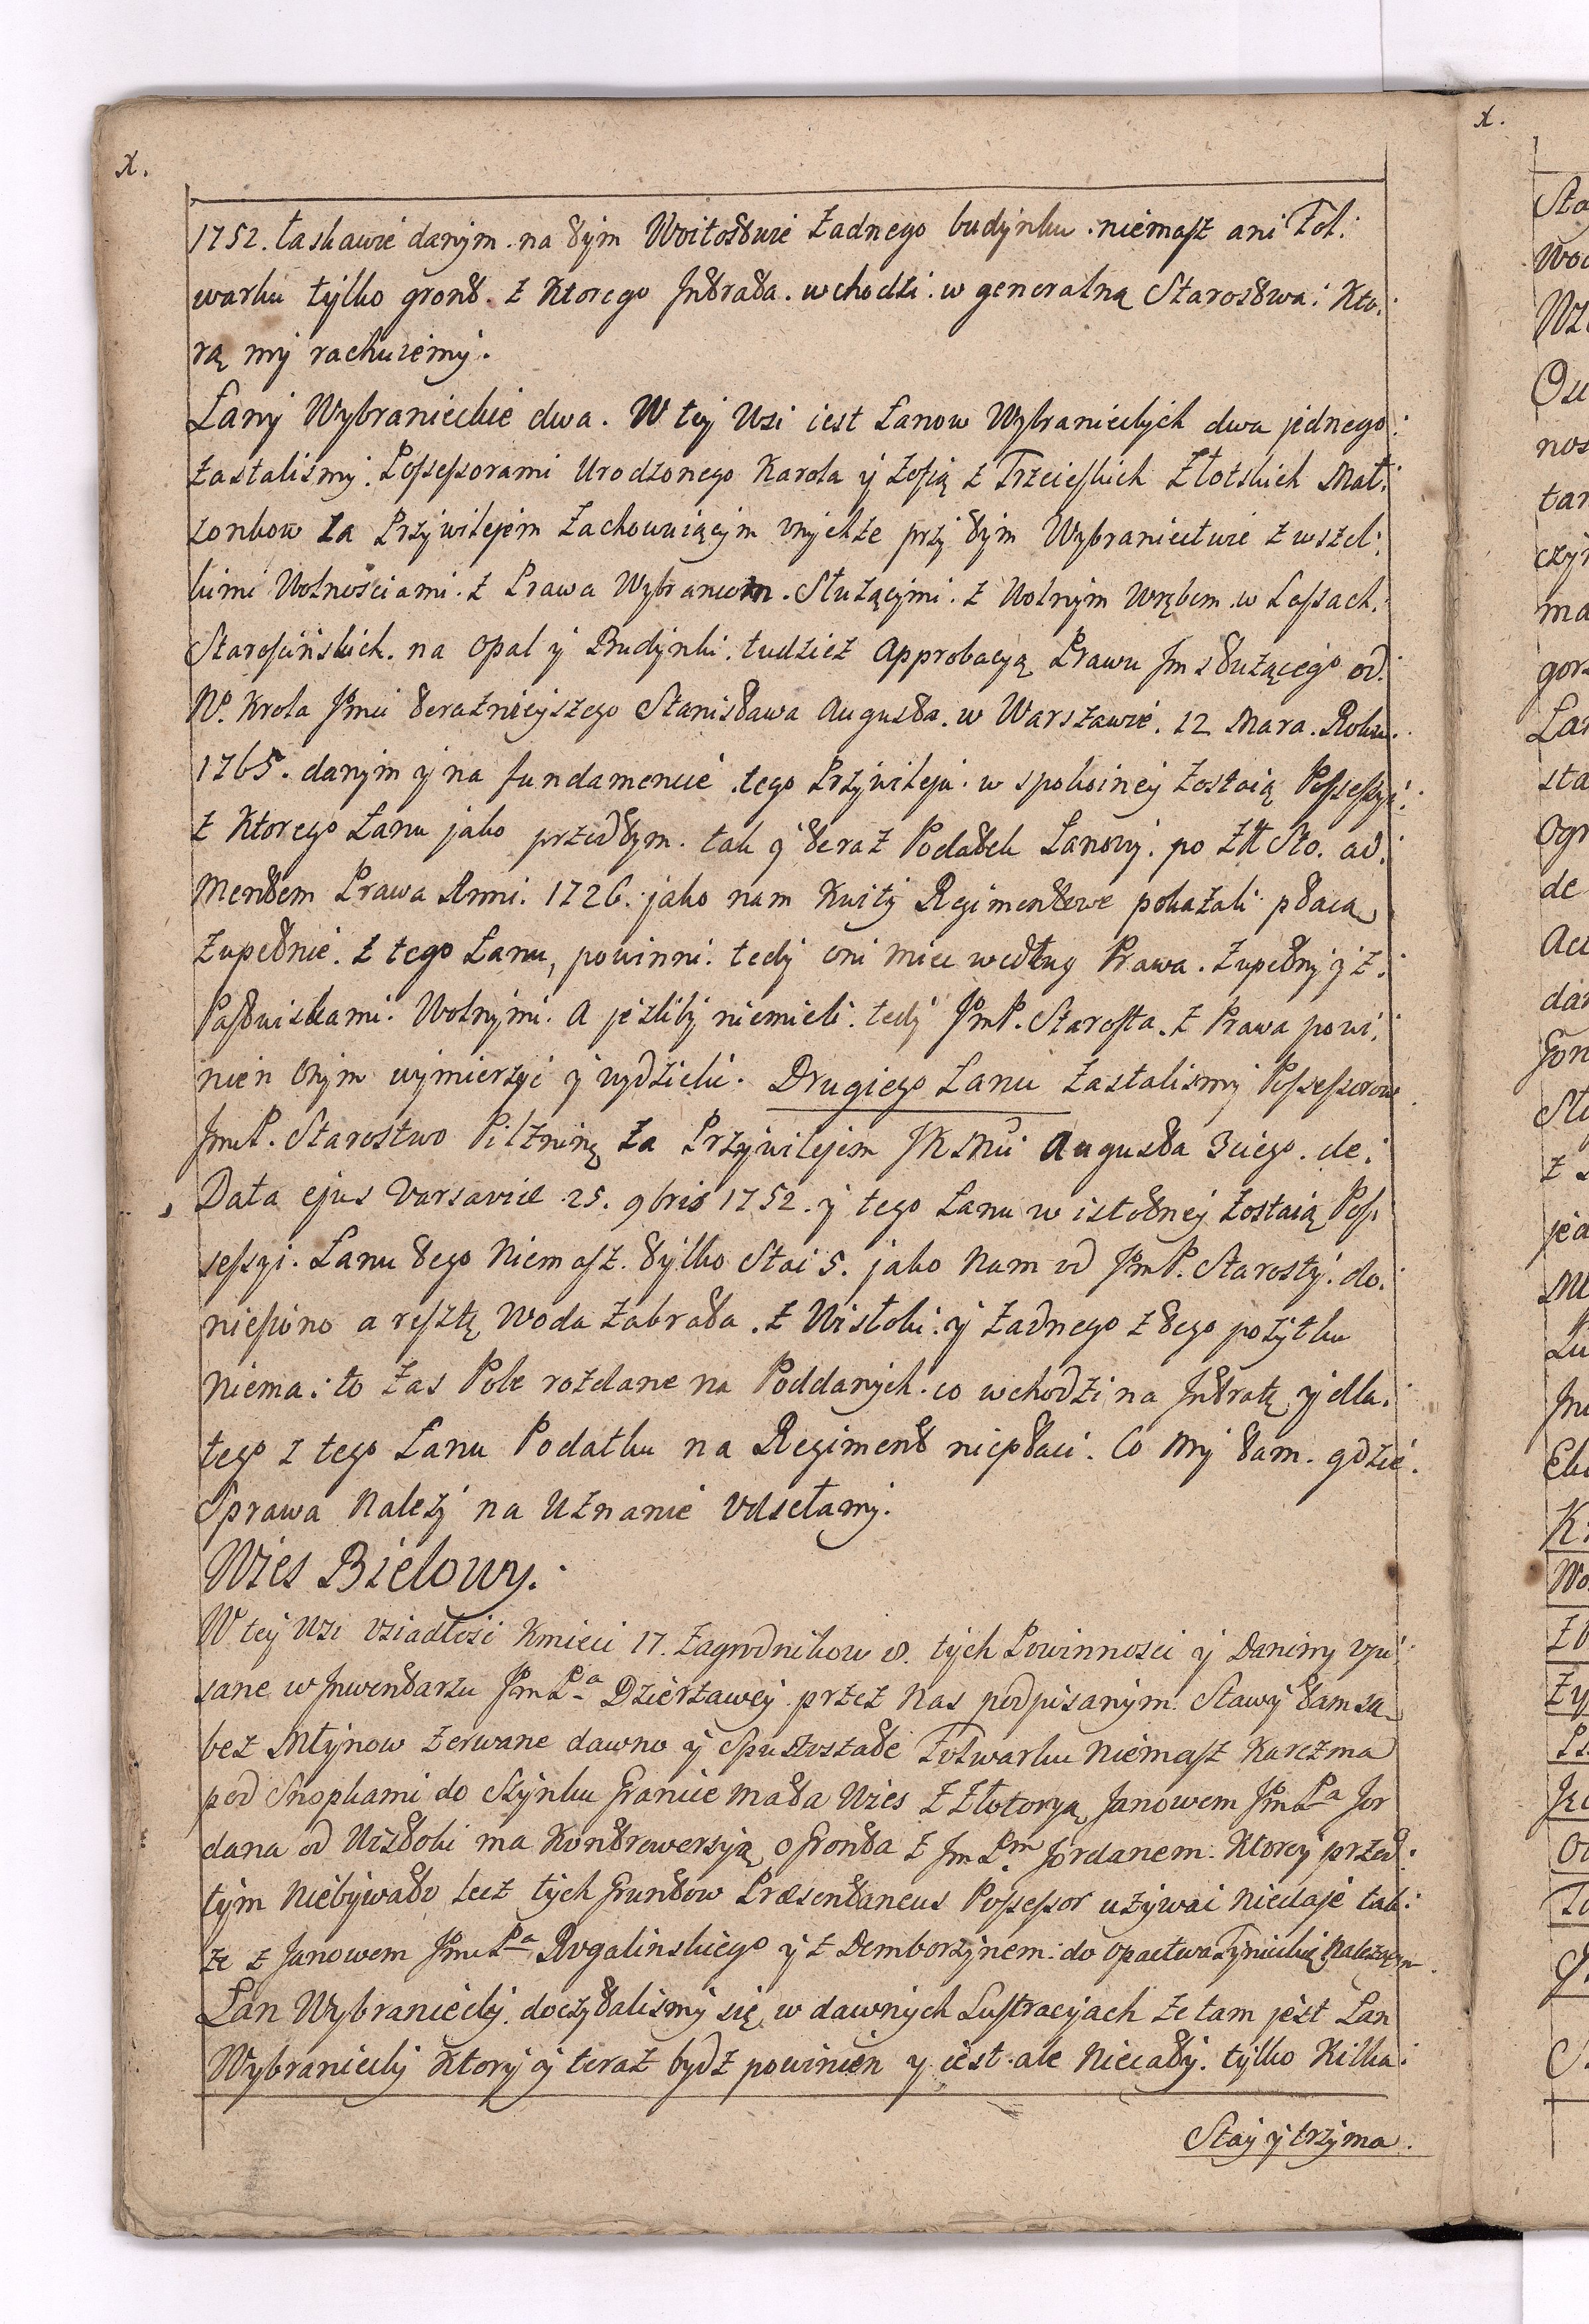 X.
1752. łaskawie danym. na tym Woitostwie żadnego budynku. niemasz ani Fol:
warku tylko gront. z ktorego Intrata. wchodzi. w generalną Starostwa: Kto:
rą my rachuiemy.
Łany Wybranieckie dwa. W tey Wsi iest Łanow Wybranieckych dwa jednego:
zastalismy. Possessorami Urodzonego Karola y Zofią z Trzecieskich Złotskich Mał:
zonkow za Przywilejem zachowuiącym onychże przy tym Wybraniectwie z wszel:
kimi Wolnościami. z Prawa Wybrancom. Służącymi. z Wolnym Wrębem. w Lassach.
Starościńskich. na Opal y Budynki. tudzież Approbacyą Prawu Im służącego od:
N. Krola Jmci teraznieyszego Stanisława Augusta. w Warszawie. 12 Mara. Roku.
1765. danym y na fundamencie tego Przywileju. w spokoiney zostaią Possessyi:
z Ktorego Łanu jako przedtym. tak y teraz Podatek Łanowy. po Zł Sto. ad.
Mentem Prawa Anni. 1726. jako nam Kwity Regimentowe pokazali płacą
Zupełnie. z tego Łanu, powinni. tedy oni miec według Prawa. Zupełny y z:
Pastwiskami. Wolnymi. A jeżliby niemieli. tedy JmP. Starosta. z Prawa powi:
nien Onym wymierzyc y wydzielic. Drugiego Łanu zastalismy Possessorow
JmP. Starostwo Pilznine za Przywilejem JKMci Augusta 3ciego. de:
Data ejus Varsaviæ 25. 9bris 1752. y tego Łanu w istotney zostaią Pos:
sessyi. Łanu tego Niemasz. tylko Stai 5. jako Nam od JmP. Starosty. do:
niesiono a resztę Woda zabrała. z Wisłoki. y żadnego z tego pożytku
niema: to zas Pole rozdane na Poddanych. co wchodzi na Intratę y dla:
tego z tego Łanu Podatku na Regiment niepłaci. Co My tam. gdzie.
Sprawa Należy na Uznanie Odsełamy.
Wies Bielowy.
W tey Wsi Osiadłości Kmieci 17. Zagrodnikow 8. tych Powinności y Daniny Opi:
sane w Inwentarzu JmPa Dzierżawcy przez Nas podpisanym. Stawy tam są
bez Młynow zerwane dawno y Spustoszałe Folwarku Niemasz Karczma
pod Snopkami do Szynku Granice Mała Wies z Złotoryą Janowem JmPa Jor
dana od Wisłoki ma Kontrowersyją o Gronta z JmPm Jordanem. Ktorey przed:
tym Niebywało lecz tych Gruntow Præsentaneus Possessor używac Niedaje tak:
że z Janowem JmPa Rogalinskiego y z Demborzynem: do Opactwa Tynieckie Należącym.
Łan Wybraniecky. doczytalismy się w dawnych Lustracyjach że tam jest Łan
Wybraniecky Ktory y teraz bydz powinien y iest. ale Niecały. tylko Kilka:
Stay y trzyma.